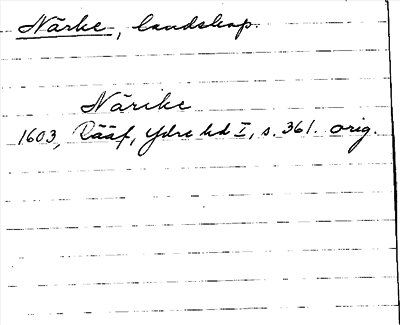 Närke, landskap.
Närike
1603, Rääf, Ydre hd I, s. 361. orig.